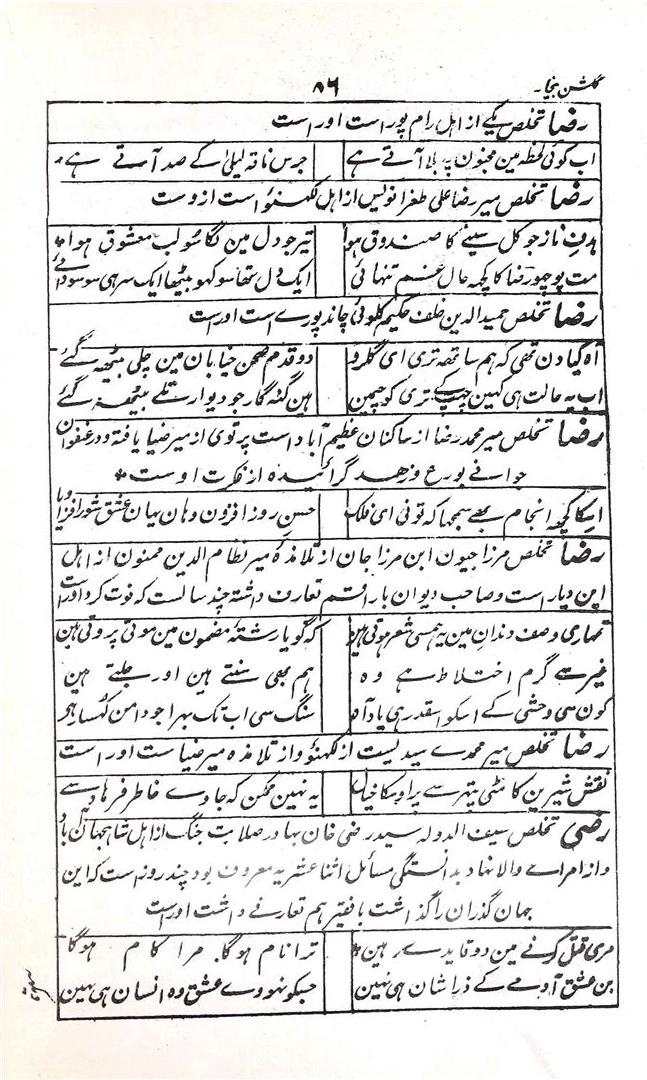 گلشن بیخار۔ ۸۶
رضا تخلص یکے از اہل رام پور است اور است
اب کوئی لحظہ مین مجنون پہ بلا آتے ہے جرس ناقہ لیلیٰ کے صدا آتے ہے
رضا تخلص میر رضا علی طغرا نویس از اہل لکھنؤ است ازوست
ہدفِ ناز جو کل سینے کا صندوق ہوا تیر جو دل مین لگا سو لب معشوق ہوا
مت پوچھو رضا کا کچھ حال غم تنہائی ایک دل تھا سو کھو بیٹھا ایک سر ہی سو سودائے
رضا تخلص حمید الدین خلف حکیم کلوئی چاندپورے است اوراست
آہ کیا دن تھی کہ ہم ساتھہ تری ای گلرو دو قدم صحن خیابان مین چلی بیٹھہ گئے
اب یہ حالت ہی کہین چھپ کے تری کوچہمین ہین گنہ گار جو دیوار تلے بیٹھہ گئے
رضا تخلص میر محمد رضا از ساکنان عظیم آباد است پرتوی از میر ضیا یافتہ و در عنفوان
جوانے بورع و زہد گرائیدہ از فکرت اوست
اسکا کچھہ انجام بھے سمجھا کہ تو نی ای فلک حسن روز افزون وہان یہان عشق شور افزا
رضا تخلص مرزا جیون ابن مرزا جان از تلامذہ میر نظام الدین ممنون از اہل
این دیار است و صاحب دیوان با راقم تعارف داشتہ چند سالست کہ فوت کرد اوراست
تمہاری وصف دندان مین یہ ہمسی شعر ہوتی ہین کہ گویا رشتہ مضمون مین موتی پروتی ہین
غیر سے گرم اختلاط ہے وہ ہم بھی سنتے ہین اور جلتے ہین
کون سی وحشی کے اسکو اسقدر ہی یاد آہ سنگ سی اب تک بہرا جو دامن کہسار ہی
رضا تخلص میر محمدے سیدیست از لکھنؤ و از تلامذہ میر ضیاست اوراست
نقش شیرین کا مٹی پتھر سے پر اوسکا خیال یہ نہین ممکن کہ جاوے خاطر فرہاد سے
رضی تخلص سیف الدولہ سید رضی خان بہادر صلابت جنگ از اہل شاہجہان آباد
و از امراے والا نہاد بدانستگی مسائل اثنا عشریہ معروف بود چند روزست کہ این
جہان گذران را گذاشت با فقیر ہم تعارفے داشت اوراست
مری قتل کرنے مین دو فایدے ہین ترا نام ہوگا۔ مرا کام ہوگا
بن عشق آدمے کے ذرا شان ہی نہین جسکو نہووے عشق وہ انسان ہی نہین